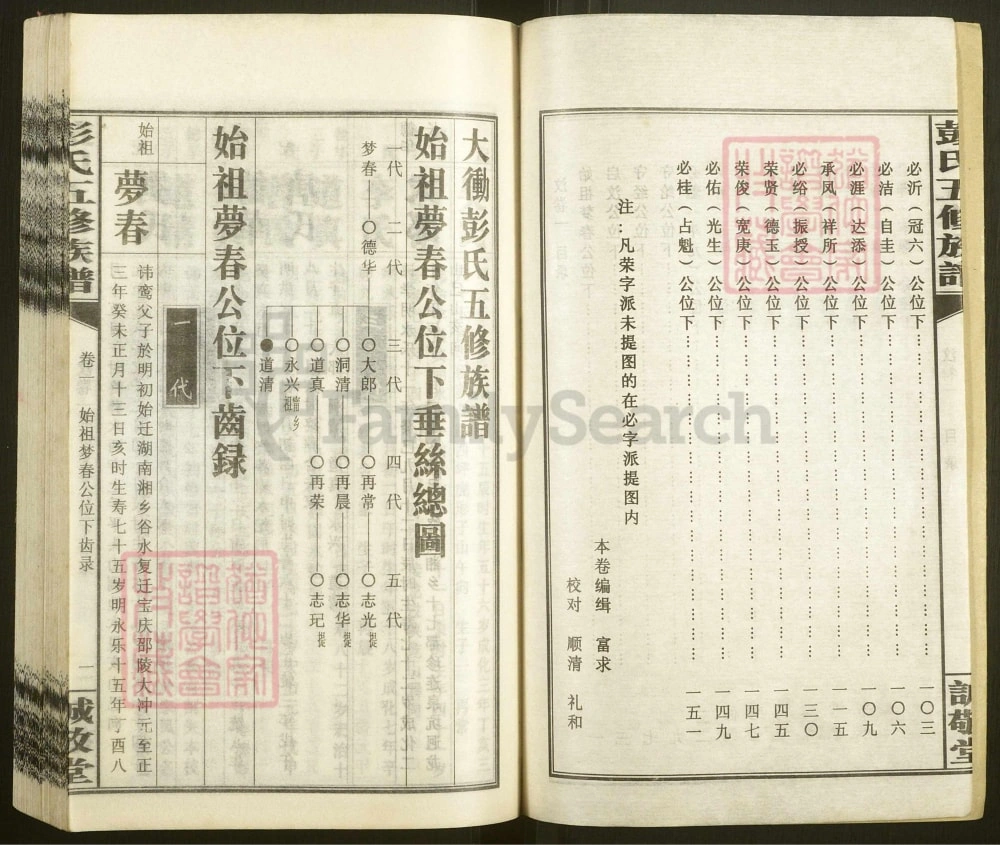 彭氏五修族譜
必沂（冠六）公位下……一〇三
必洁（自圭）公位下……一〇六
必涯（达添）公位下……一〇九
承凤（祥所）公位下……一一五
必绤（振授）公位下……一三〇
荣贤（德玉）公位下……一四五
荣俊（宽庚）公位下……一四七
必佑（光生）公位下……一四九
必桂（占魁）公位下……一五一
注：凡荣字派未提图的在必字派提图内
本卷编缉 富求
校对 顺清 礼和
大衝彭氏五修族譜
始祖夢春公位下垂絲總圖
一代 二代 三代 四代 五代
梦春——〇德华——〇大郎——〇再常——〇志光
〇洞清——〇再晨——〇志华
〇道真——〇再荣——〇志玘
〇永兴
●道清
始祖夢春公位下齒録
一代
始祖
夢春
讳鸾父子於明初始迁湖南湘乡谷水复迁宝庆邵陵大冲元至正
三年癸未正月十三日亥时生寿七十五岁明永乐十五年丁酉八
彭氏五修族譜
卷二 始祖梦春公位下齿录
一
FamilySearch